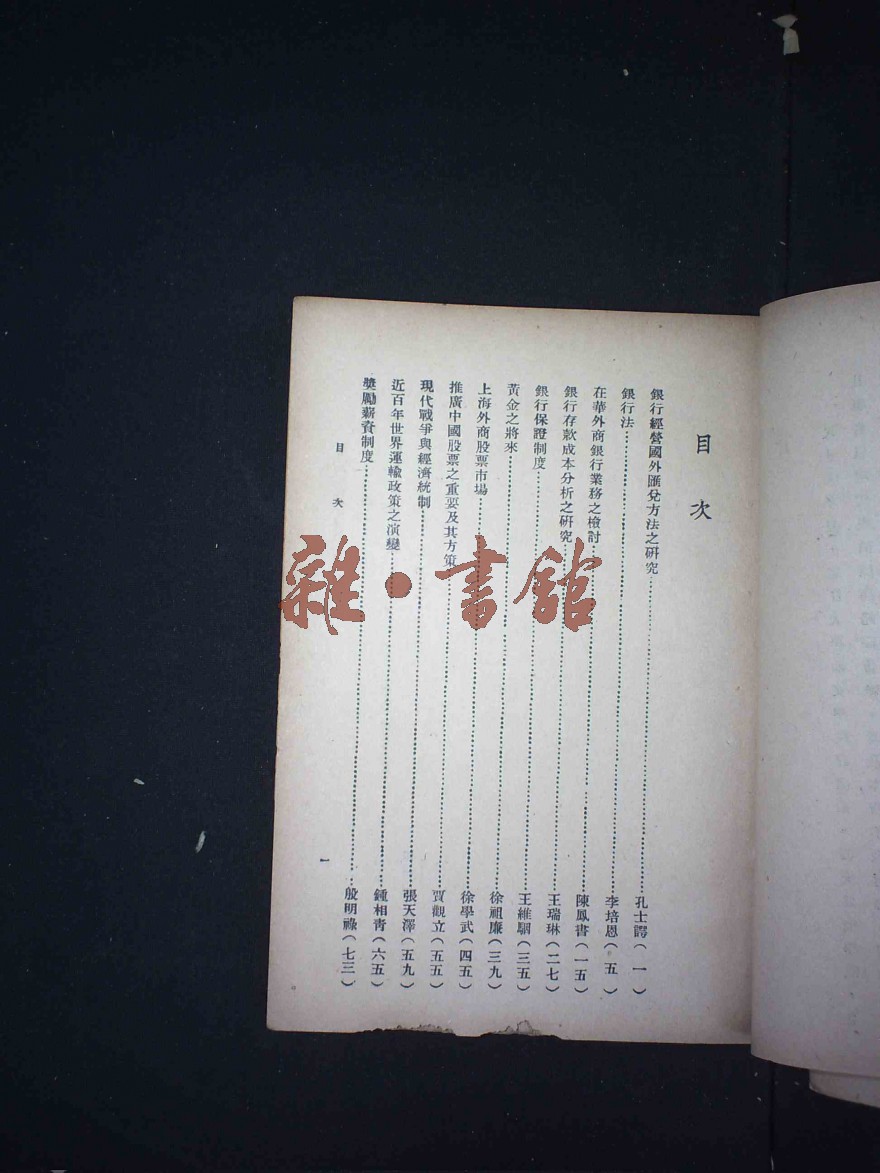 目次
銀行經營國外匯兌方法之研究……孔士諤(一)
銀行法……李培恩(五)
在華外商銀行業務之檢討……陳鳳書(一五)
銀行存款成本分析之研究……王瑞琳(二七)
銀行保證制度……王維駰(三五)
黃金之將來……徐祖廉(三九)
上海外商股票市場……徐學武(四五)
推廣中國股票之重要及其方策……賈觀立(五五)
現代戰爭與經濟統制……張天澤(五九)
近百年世界運輸政策之演變……鍾相青(六五)
獎勵薪資制度……殷明祿(七三)
目次
一
雜·書館